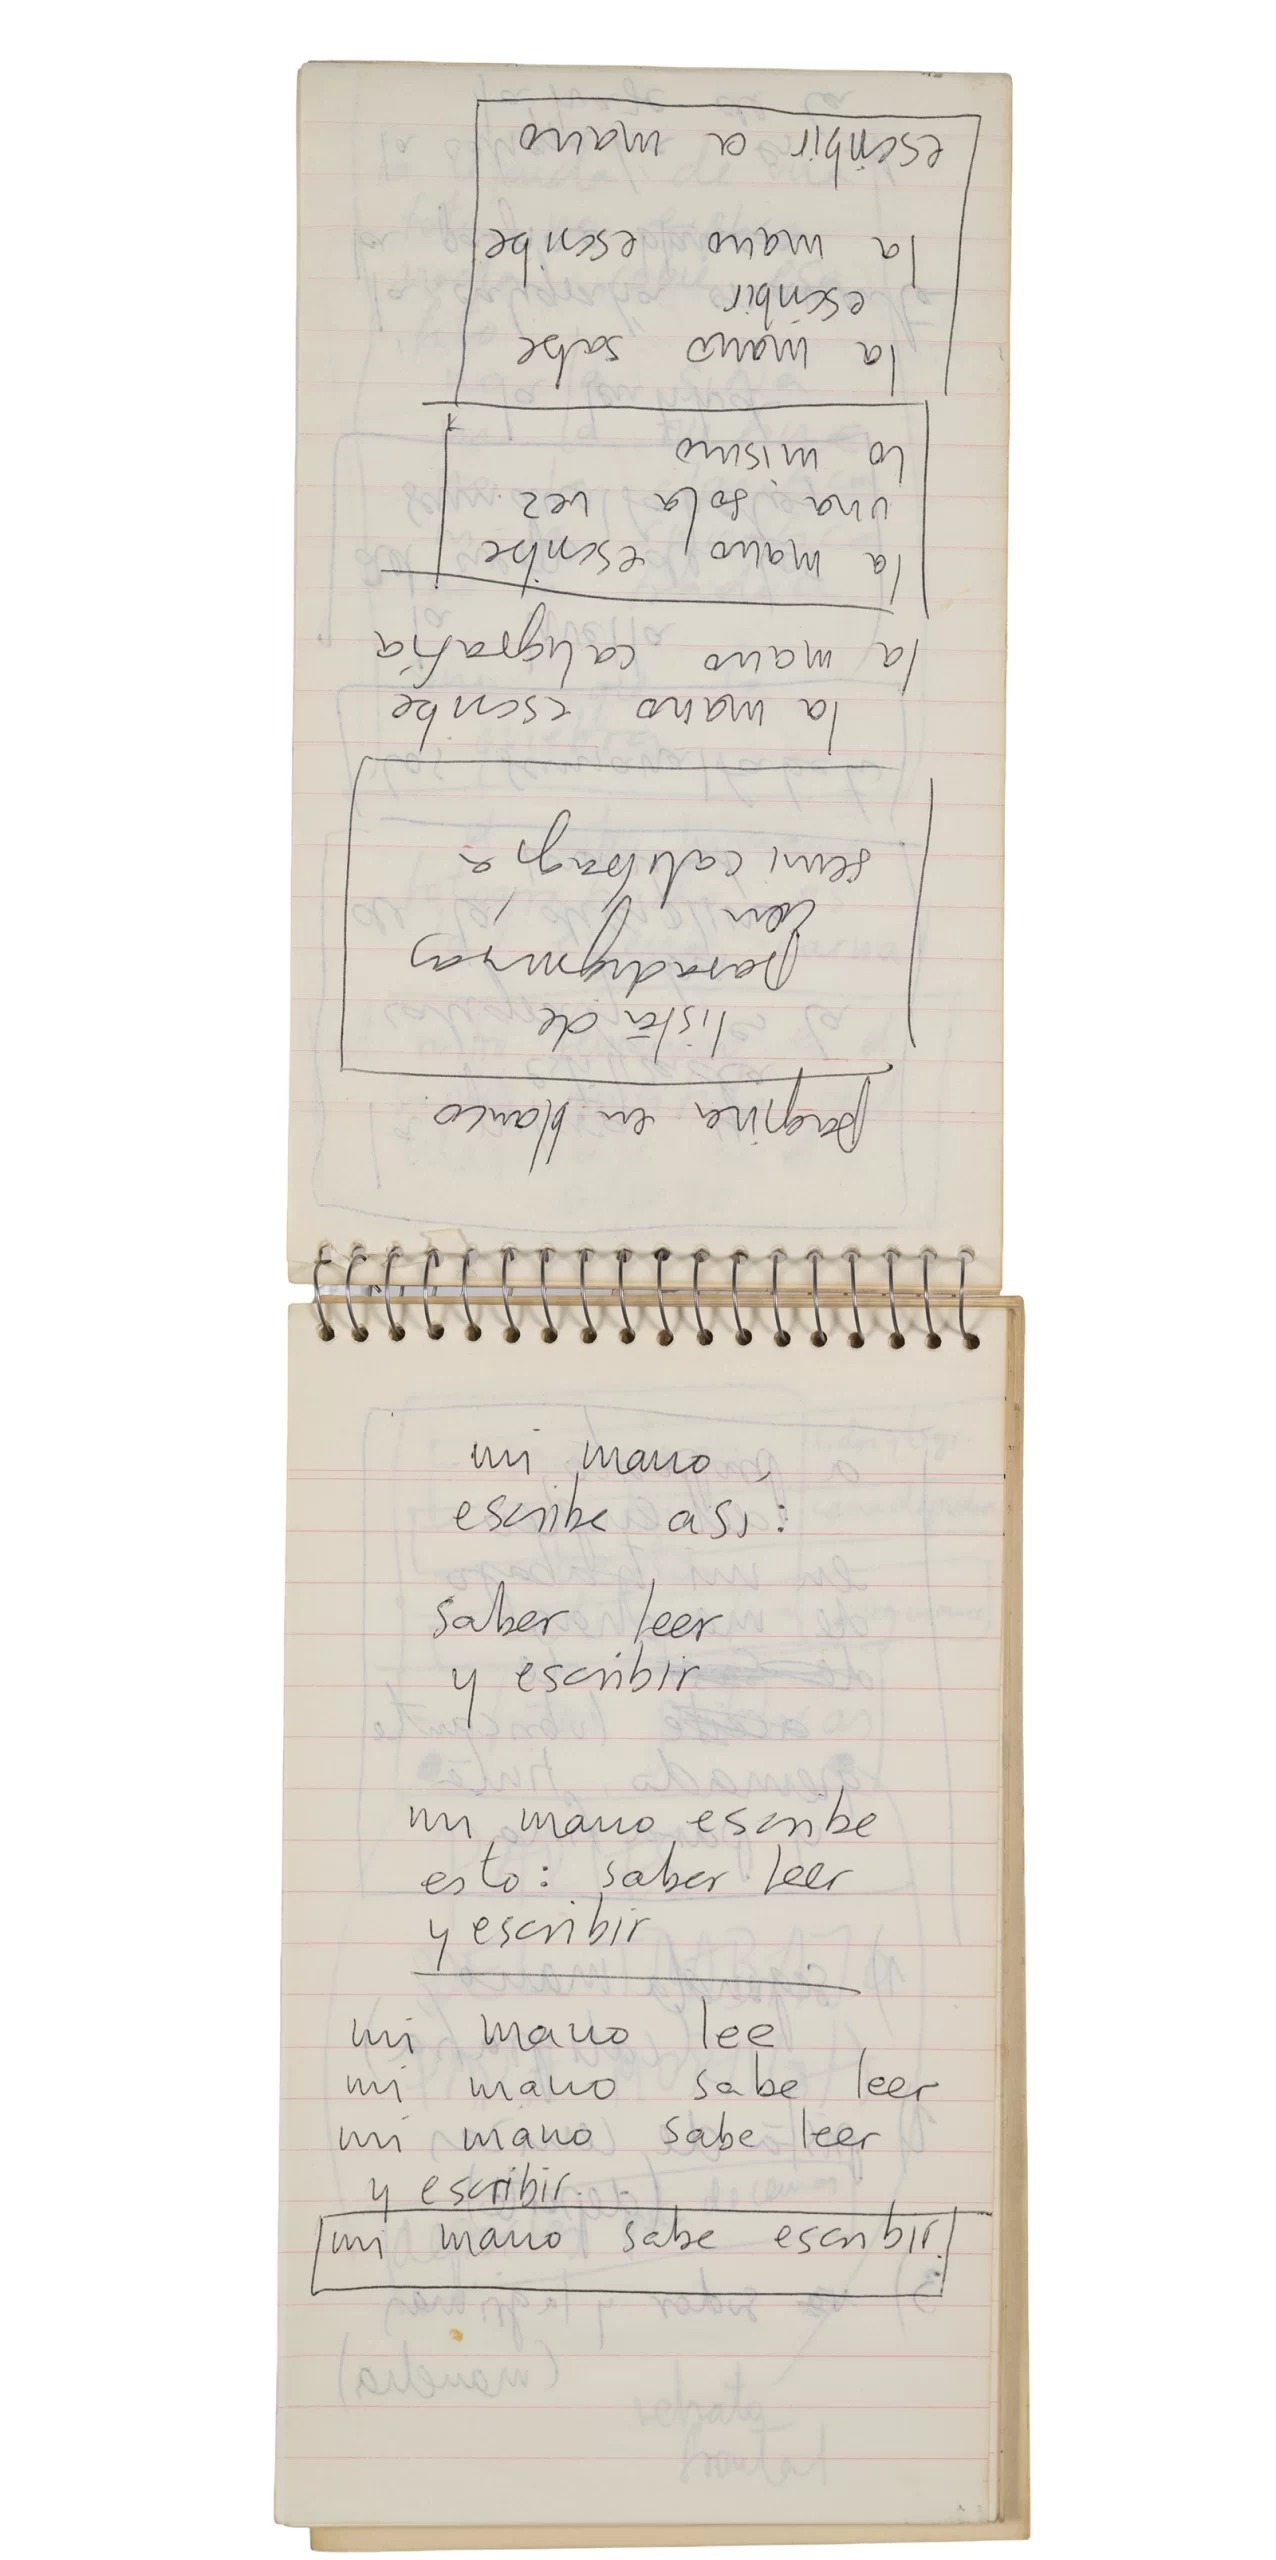 pagina en blanco
lista de
paradigmas
con
semi
la mano escribe
la mano caligrafía
la mano escribe
una sola vez
lo mismo
la mano sabe
escribir
la mano escribe
escribir a mano
mi mano
escribe así:
saber leer
y escribir
mi mano escribe
esto: saber leer
y escribir
mi mano lee
mi mano sabe leer
mi mano sabe leer
y escribir.
mi mano sabe escribir.